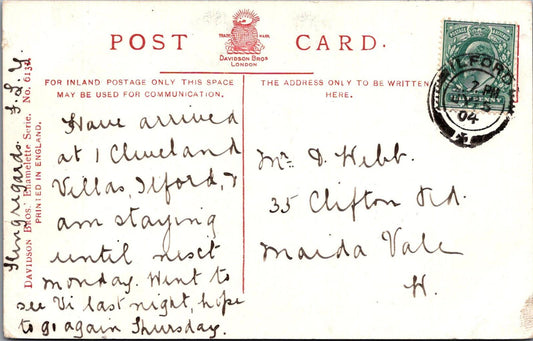 POST CARD.
TRADE MARK
DAVIDSON BROS
LONDON
FOR INLAND POSTAGE ONLY THIS SPACE
MAY BE USED FOR COMMUNICATION.
THE ADDRESS ONLY TO BE WRITTEN
HERE.
Have arrived
at 1 Cleveland
Villas, Ilford, &
am staying
until next
monday. Went to
see Vi last night, hope
to go again Thursday.
regards.
DAVIDSON BROS.' Enamelette Serie. No. 613
PRINTED IN ENGLAND.
Mr. D. Webb.
35 Clifton Rd.
Maida Vale
W.
ILFORD
7 PM
04
HALFPENNY